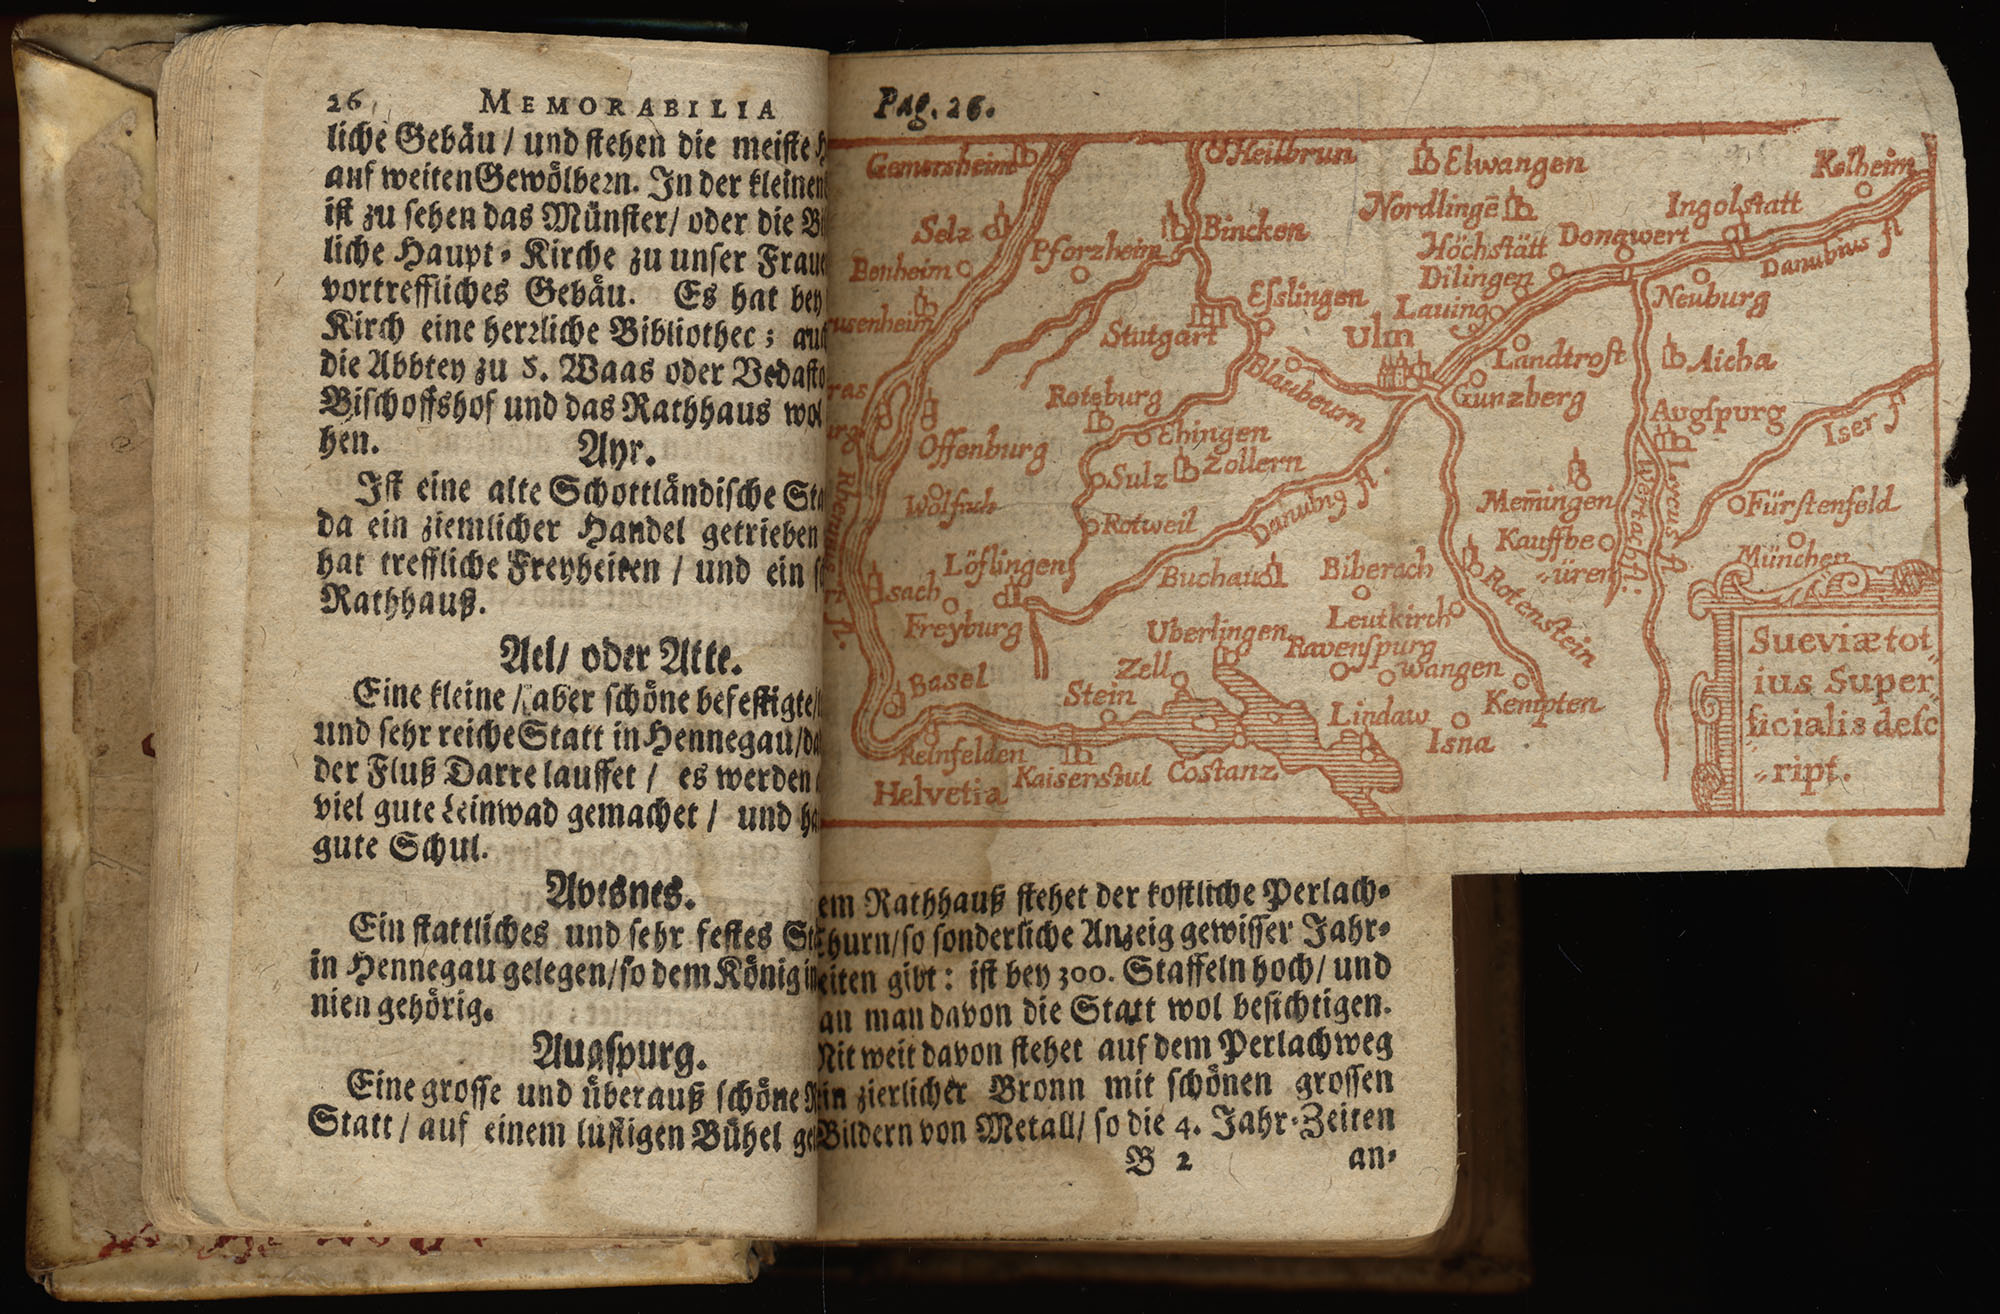 26 MEMORABILIA
liche Gebäu / und stehen die meiste
auf weiten Gewölbern. In der kleinen
ist zu sehen das Münster / oder die
liche Haupt-Kirche zu unser
vortreffliches Gebäu. Es hat bey
Kirch eine herrliche Bibliothec;
die Abbtey zu S. Waas oder
Bischoffshof und das Rathhaus
hen.
Ayr.
Ist eine alte Schottländische
da ein ziemlicher Handel getrieben
hat treffliche Freyheiten / und ein
Rathhauß.
Ael / oder Atte.
Eine kleine / aber schöne befestigte
und sehr reiche Statt in Hennegau /
der Fluß Darre lauffet / es werden
viel gute Leinwad gemachet / und
gute Schul.
Avesnes.
Ein stattliches und sehr festes
in Hennegau gelegen / so dem König
nien gehörig.
Augspurg.
Eine grosse und überauß schöne
Statt / auf einem lustigen Bühel
Pag. 26.
Gemersheim
Heilbrun
Elwangen
Kelheim
Nordlingē
Ingolstatt
Selz
Bincken
Höchstätt
Donawert
Pforzheim
Danubius fl
Benheim
Dilingen
Esslingen
Lauing
Neuburg
usenheim
Stutgart
Ulm
Landtrost
Aicha
ras
Blaubeurn
Roteburg
Gunzberg
Augspurg
urg
Offenburg
Ehingen
Iser fl
Zollern
Sulz
Wolfach
Danubiꝰ fl.
Mem̄ingen
Wertach fl.
Lycus fl
Fürstenfeld
Rotweil
Rhenus fl.
Kauffbe
-üren
München
Löflingen
Buchau
Biberach
Rotenstein
sach
Leutkirch
Freyburg
Uberlingen
Ravenspurg
Zell
wangen
Basel
Stein
Kempten
Lindaw
Isna
Reinfelden
Kaiserstul
Costanz
Helvetia
Sueviæ tot
ius Super
ficialis desc
-ript.
em Rathhauß stehet der kostliche Perlach-
thurn / so sonderliche Anzeig gewisser Jahr-
eiten gibt: ist bey 300. Staffeln hoch / und
an man davon die Statt wol besichtigen.
Nit weit davon stehet auf dem Perlachweg
in zierlicher Bronn mit schönen grossen
Bildern von Metall / so die 4. Jahr-Zeiten
B 2 an-